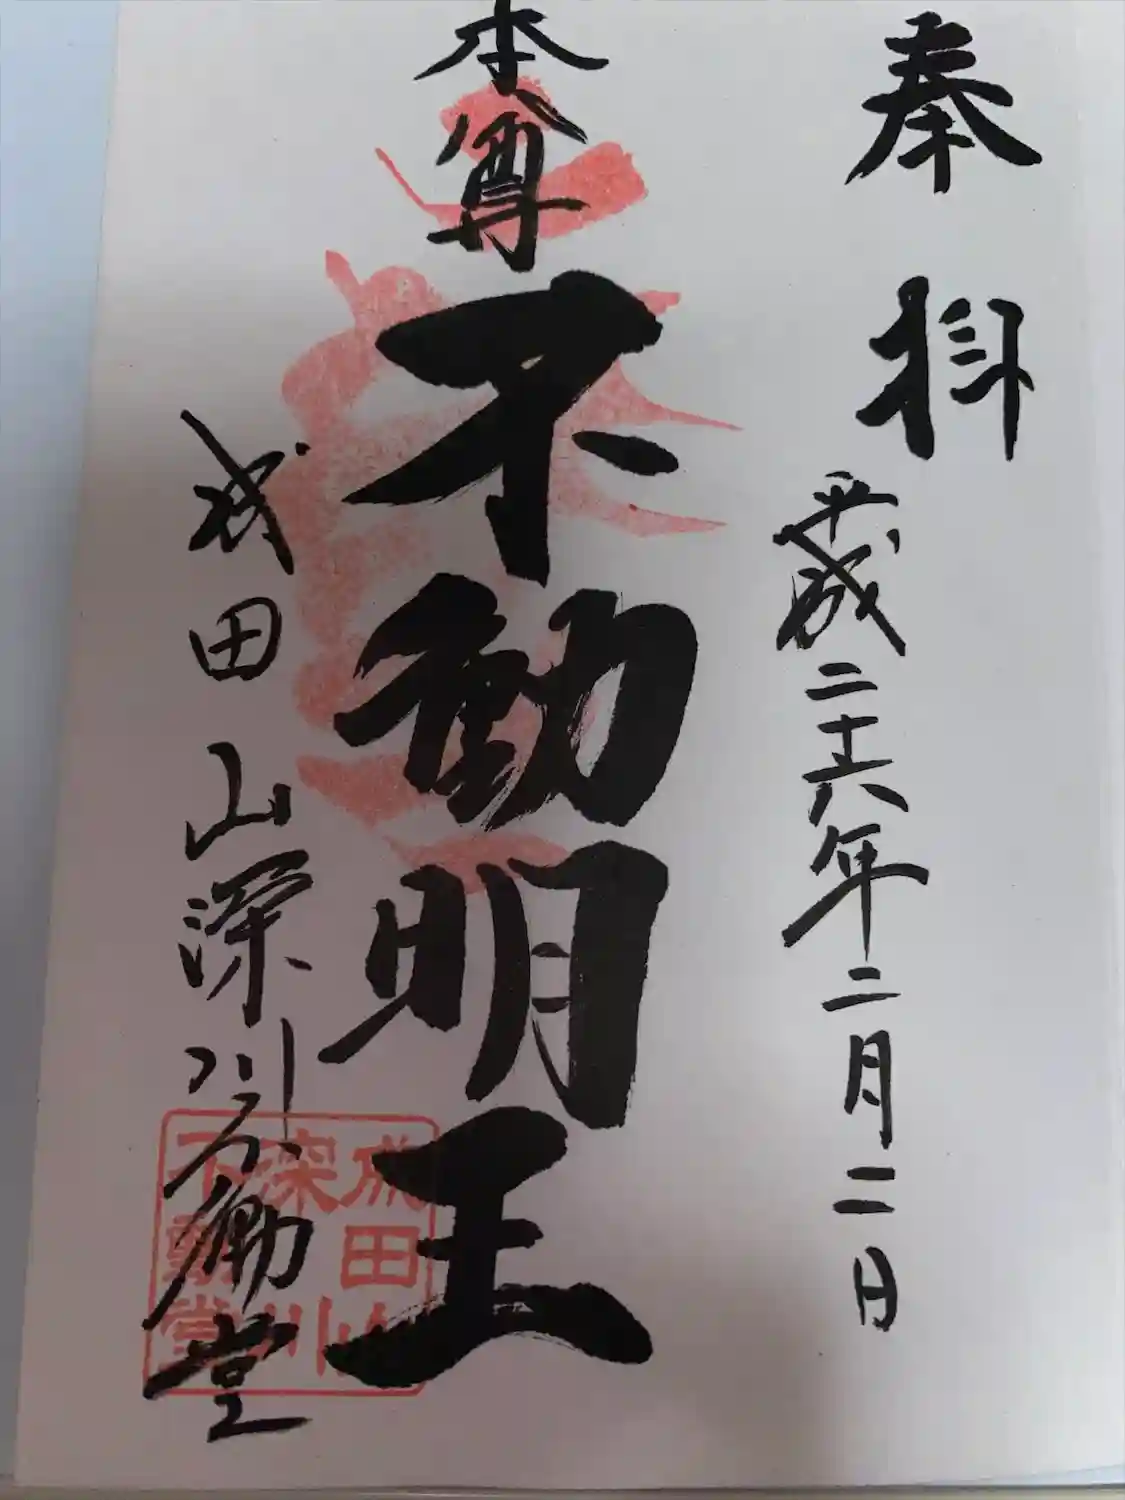 奉拝
平成二十六年二月二日
本尊
不動明王
成田山深川不動堂
成田山
深川
不動堂